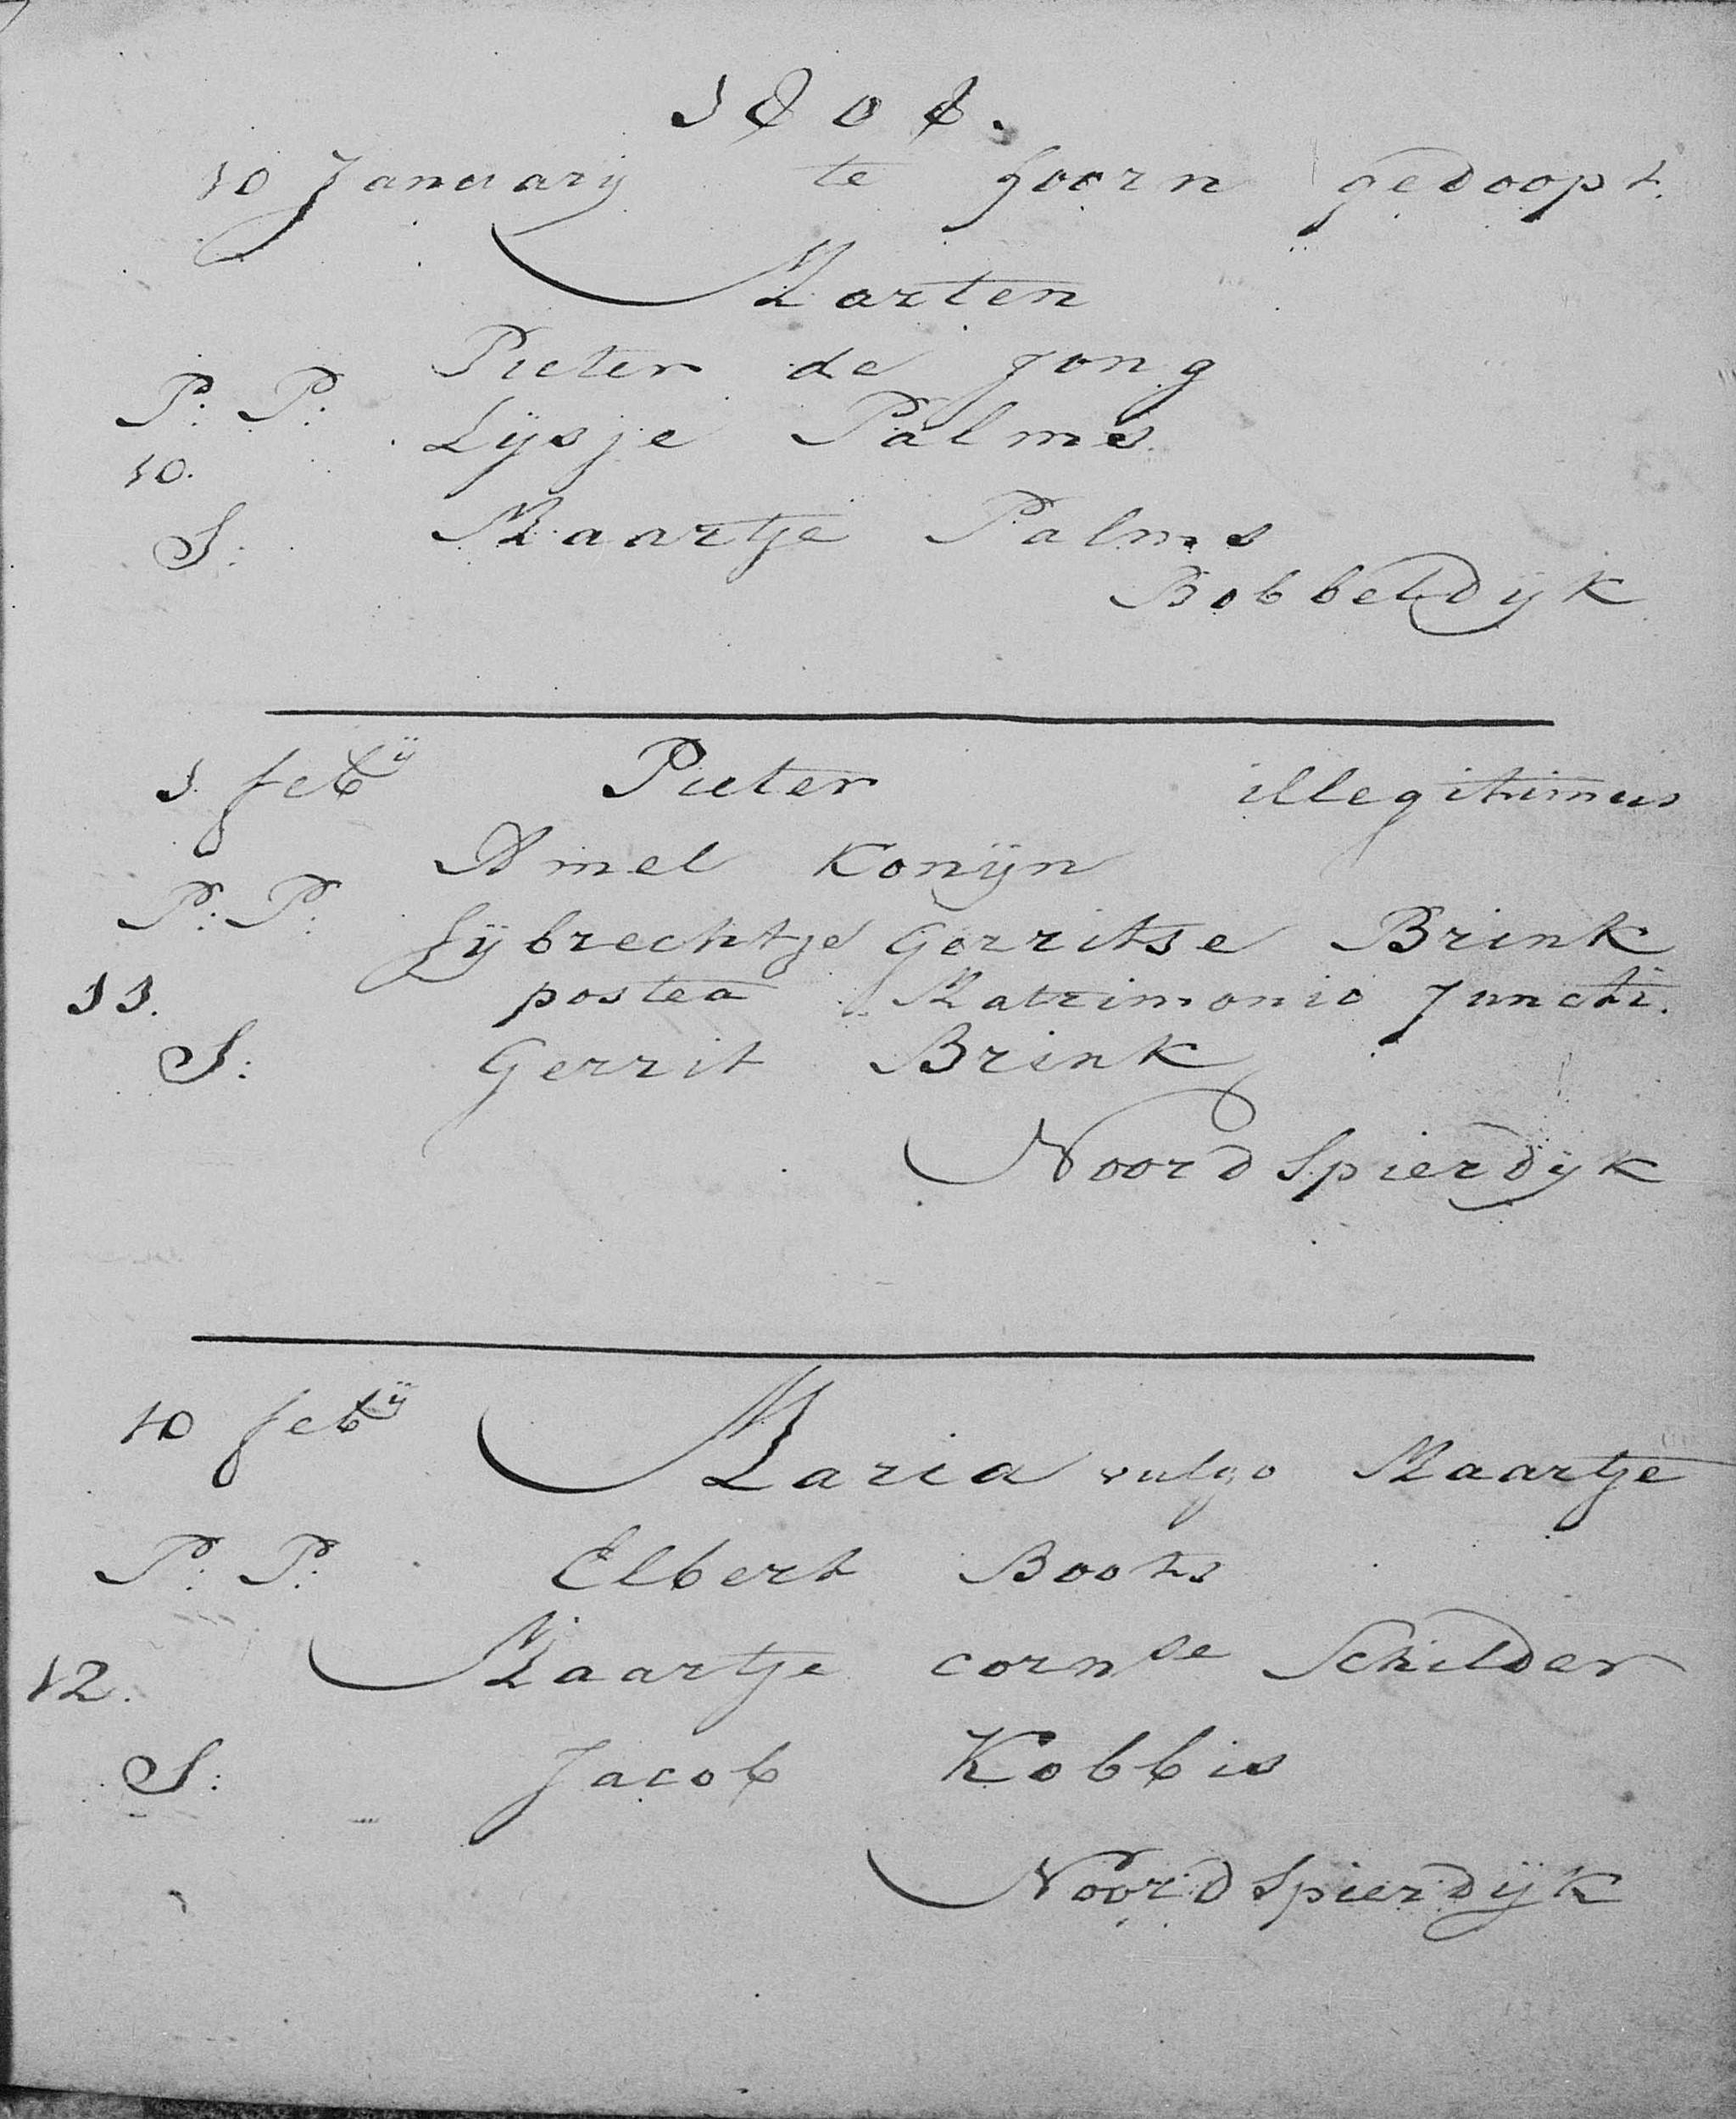 1808.
10 January te hoorn gedoopt.
Marten
Pieter de Jong
P: P: Lysje Palms
10.
S: Maartje Palms
Bobbeldyk
1 febÿ Pieter illegitimus
Amel Konÿn
P: P: Sÿbrechtje Gerritse Brink
11. postea Matrimonio Juncti.
S: Gerrit Brink
Noord Spierdÿk
10 febÿ Maria vulgo Maartje
P: P: Elbert Boots
12. Maartje cornse Schilder
S: Jacob Kobbis
Noord Spierdÿk